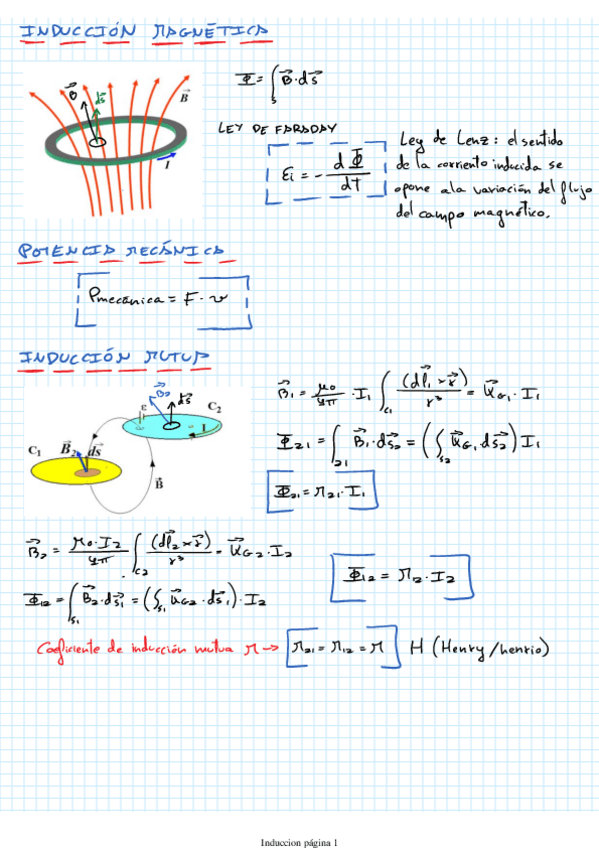 INDUCCIÓN MAGNÉTICA
B⃗ ds⃗ B⃗ I
Φ = ∫_S B⃗·ds⃗
LEY DE FARADAY
Ɛi = - dΦ/dt
Ley de Lenz: el sentido
de la corriente inducida se
opone a la variación del flujo
del campo magnético.
POTENCIA MECÁNICA
Pmecánica = F · v
INDUCCIÓN MUTUA
C₁ B⃗₂ ds⃗ B⃗ ε B⃗₂ ds⃗ C₂ I
B⃗₁ = μ₀/4π · I₁ ∫_C₁ (dl⃗₁ × r⃗)/r³ = K⃗G₁ · I₁
Φ₂₁ = ∫₂₁ B⃗₁·ds⃗₂ = (∫_S₂ K⃗G₁ ds⃗₂) I₁
Φ₂₁ = M₂₁ · I₁
B⃗₂ = μ₀·I₂/4π ∫_C₂ (dl⃗₂ × r⃗)/r³ = K⃗G₂ · I₂
Φ₁₂ = ∫_S₁ B⃗₂·ds⃗₁ = (∫_S₁ K⃗G₂ · ds⃗₁) · I₂
Φ₁₂ = M₁₂ · I₂
Coeficiente de inducción mutua M → M₂₁ = M₁₂ = M H (Henry/henrio)
Induccion página 1